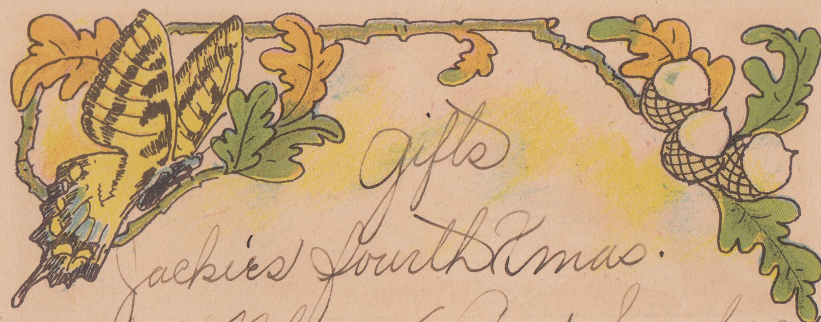 gifts
Jackies fourth Xmas.